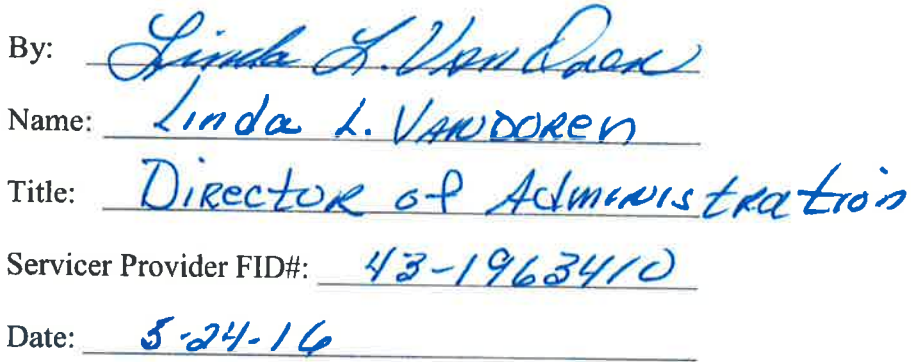 By: Linda L. VanDoren
Name: Linda L. VANDOREN
Title: Director of Administration
Servicer Provider FID#: 43-1963410
Date: 5-24-16